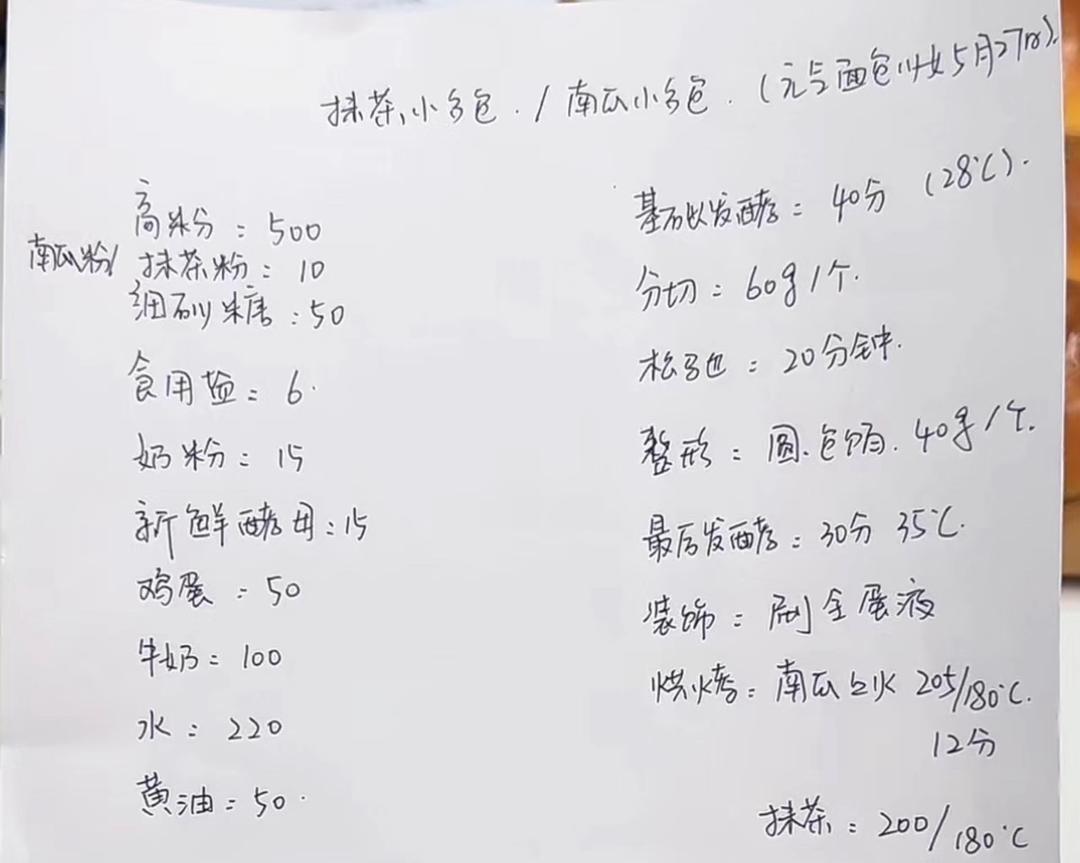 抹茶小多包. / 南瓜小多包. (元气面包师女5月27日).
高粉: 500
南瓜粉/ 抹茶粉: 10
细砂糖: 50
食用盐: 6.
奶粉: 15
新鲜酵母: 15
鸡蛋: 50
牛奶: 100
水: 220
黄油: 50.
基础发酵: 40分 (28℃).
分切: 60g/个.
松弛: 20分钟.
整形: 圆.包馅. 40g/个.
最后发酵: 30分 35℃.
装饰: 刷全蛋液
烘烤: 南瓜上火 205/180℃.
12分
抹茶: 200/180℃